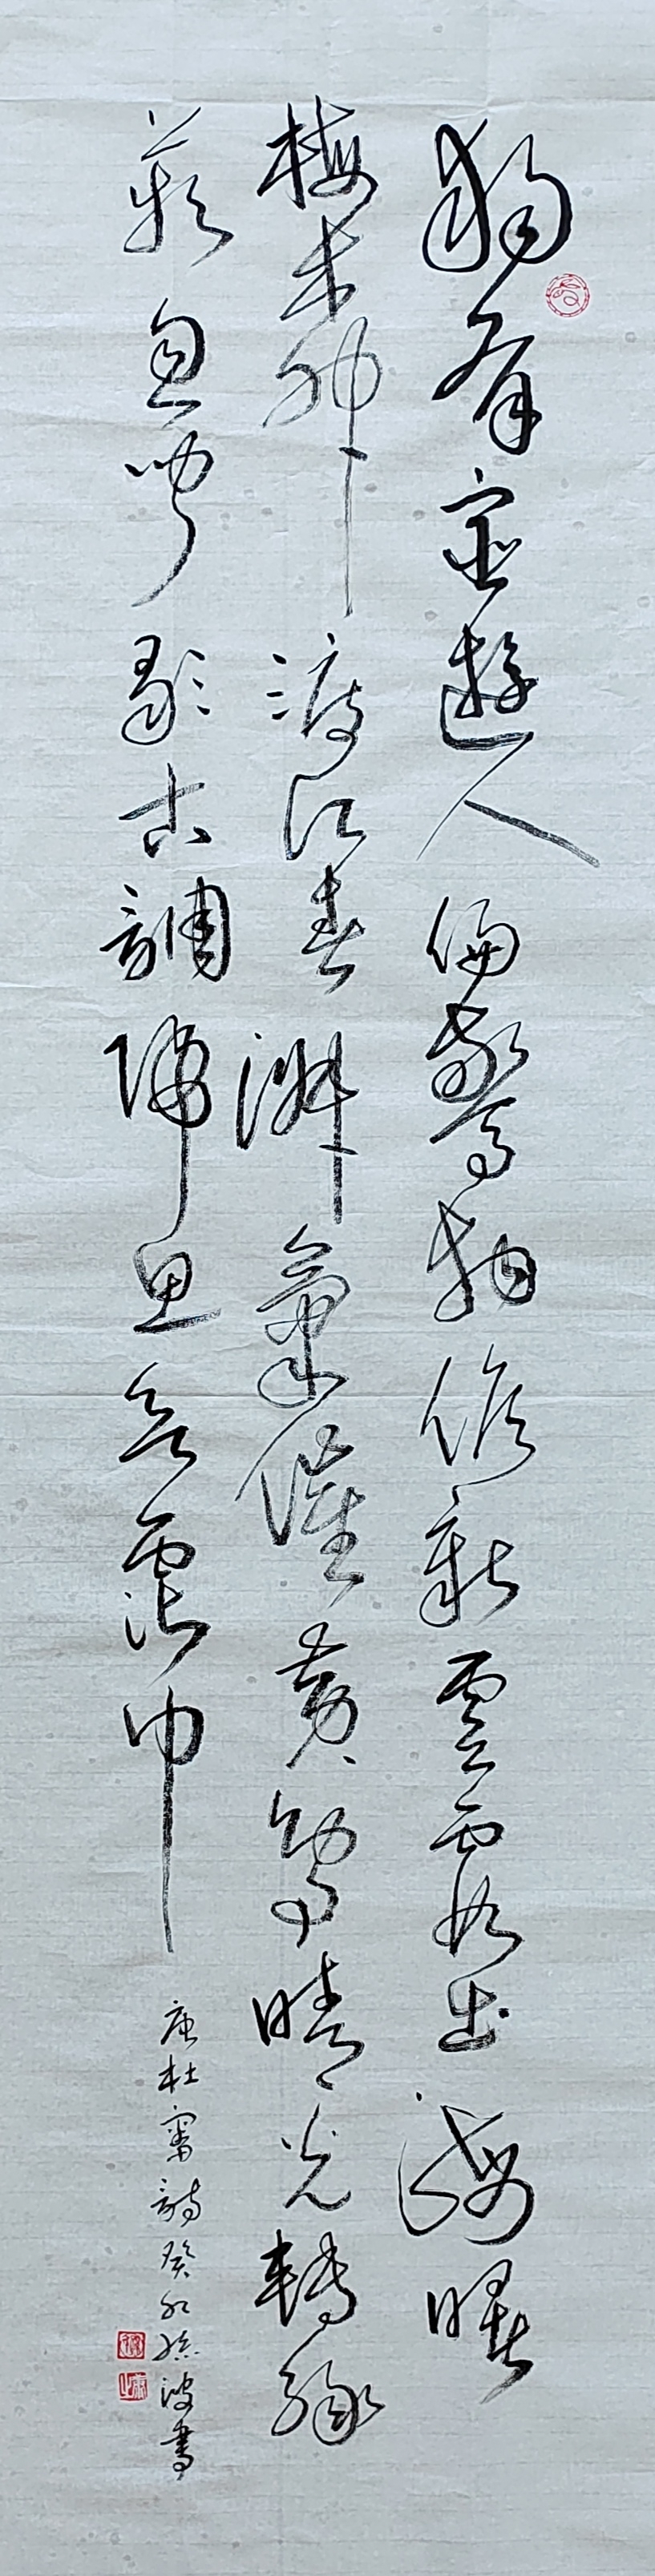 獨有宦遊人偏驚物候新雲霞出海曙
梅柳渡江春淑氣催黃鳥晴光轉綠
蘋忽聞歌古調歸思欲霑巾
唐杜審言詩癸卯 波書